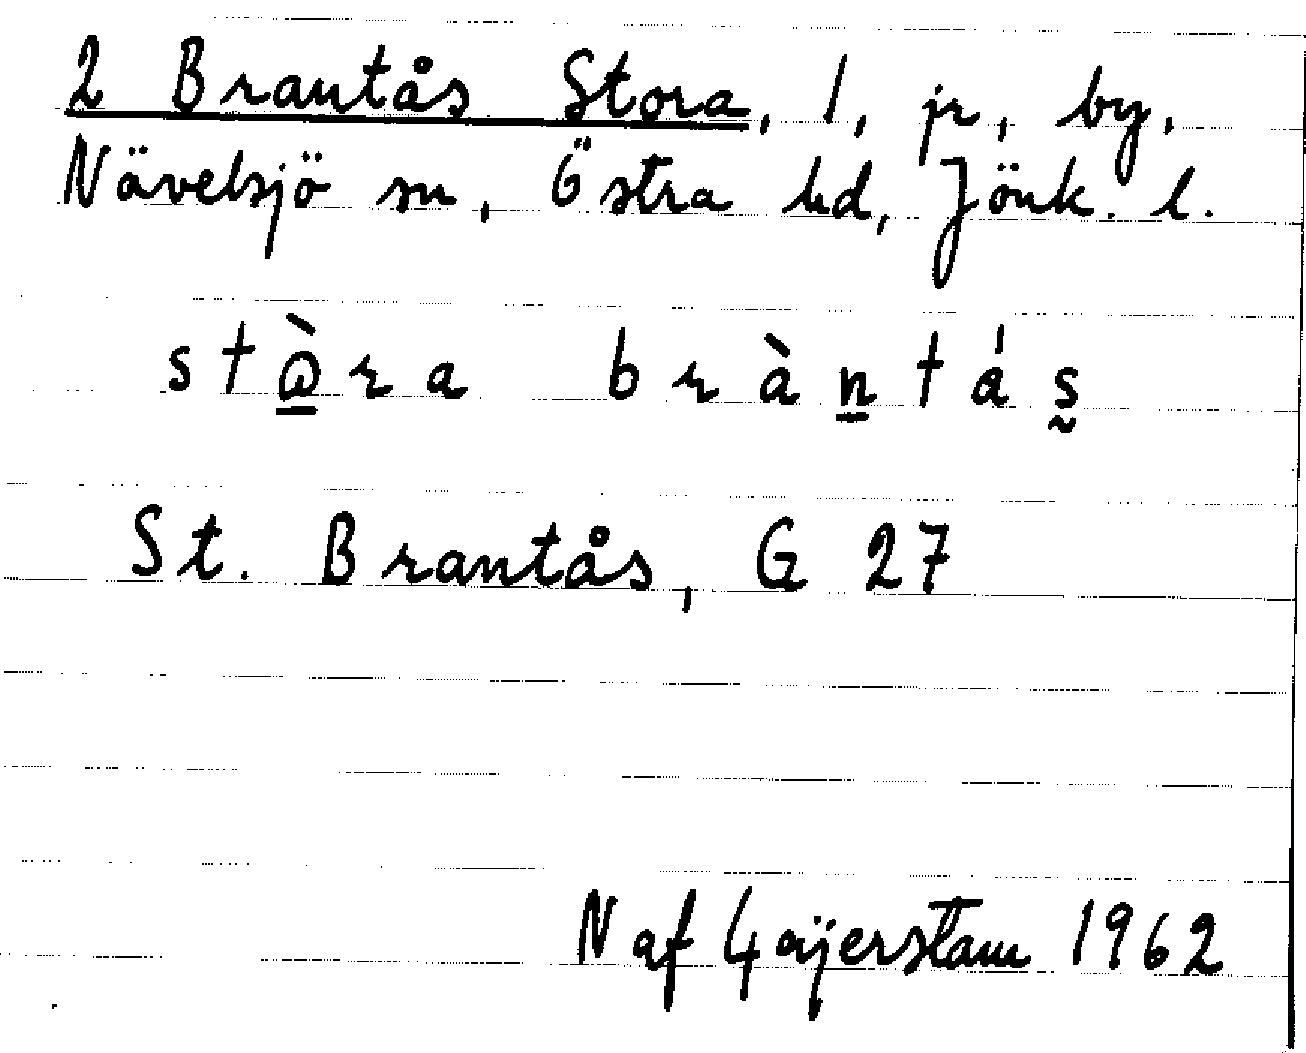 2 Brantås Stora, 1, jr, by,
Nävelsjö sn, Östra hd, Jönk. l.
stɷ̠̀ra bràn̠tás̰
St. Brantås, G 27
N af Gaijerstam 1962